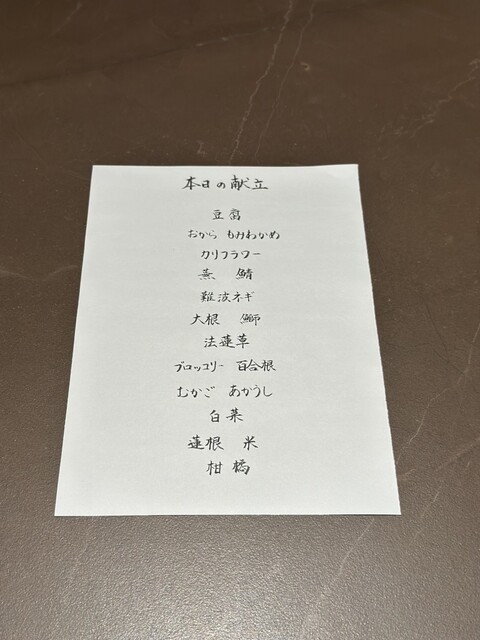 本日の献立
豆腐
おから もみわかめ
カリフラワー
蕪 鯖
難波ネギ
大根 鰤
法蓮草
ブロッコリー 百合根
むかご あかうし
白菜
蓮根 米
柑橘